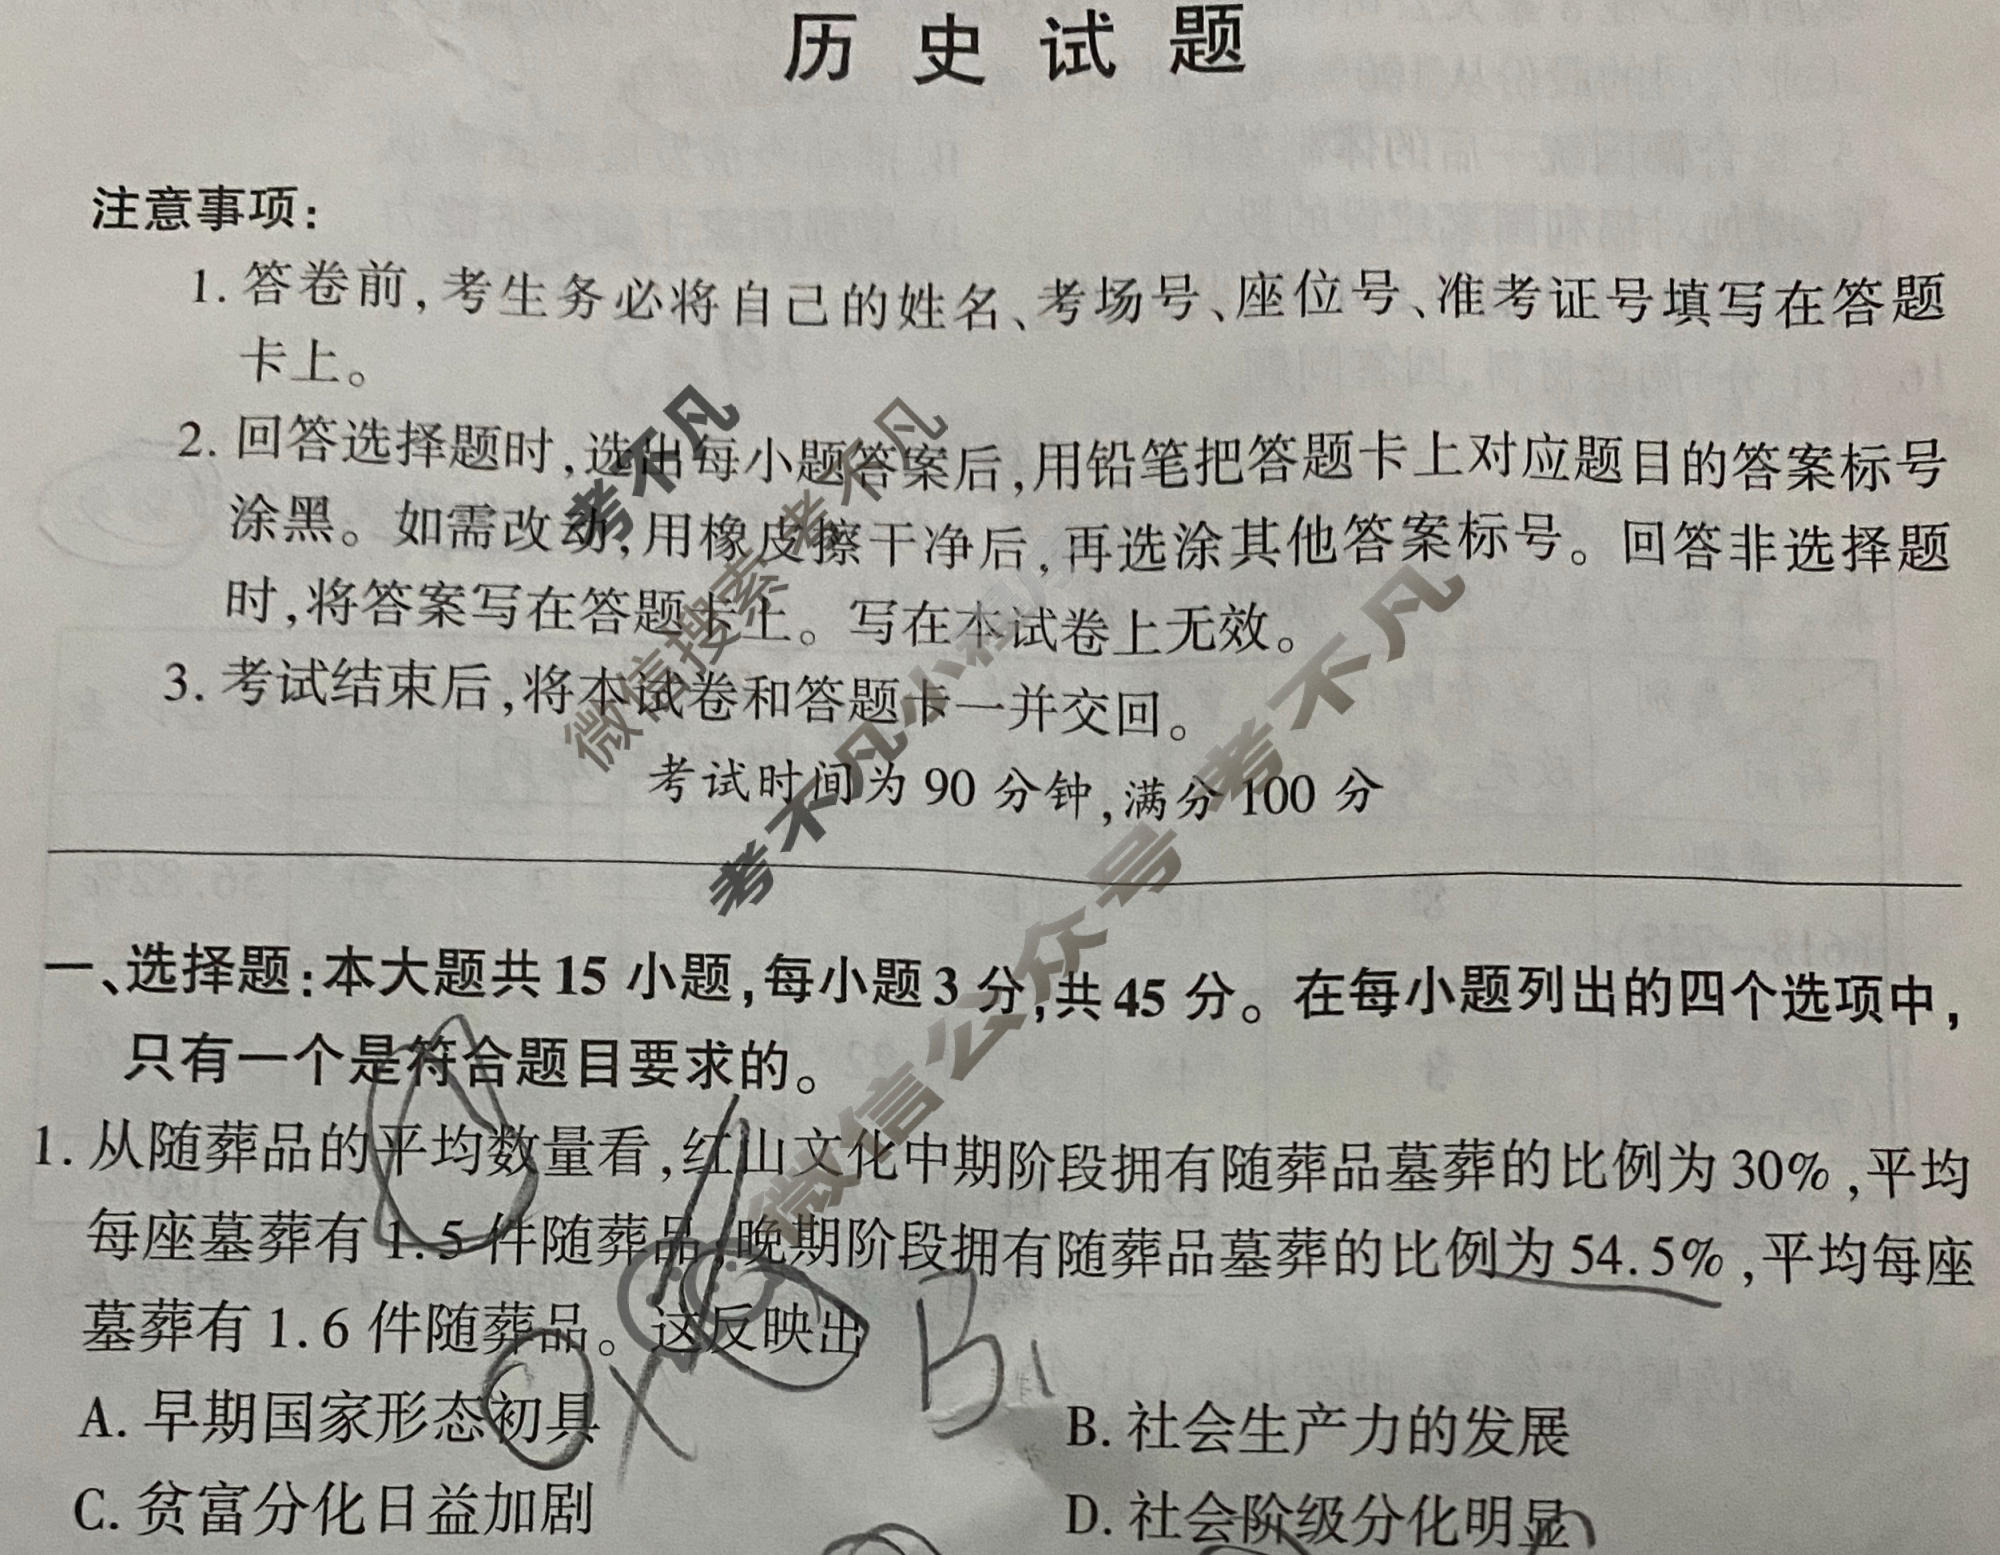 历史试题
注意事项：
1. 答卷前,考生务必将自己的姓名、考场号、座位号、准考证号填写在答题
卡上。
2. 回答选择题时,选出每小题答案后,用铅笔把答题卡上对应题目的答案标号
涂黑。如需改动,用橡皮擦干净后,再选涂其他答案标号。回答非选择题
时,将答案写在答题卡上。写在本试卷上无效。
3. 考试结束后,将本试卷和答题卡一并交回。
考试时间为 90 分钟,满分 100 分
一、选择题:本大题共 15 小题,每小题 3 分,共 45 分。在每小题列出的四个选项中,
只有一个是符合题目要求的。
1. 从随葬品的平均数量看,红山文化中期阶段拥有随葬品墓葬的比例为 30%,平均
每座墓葬有 1.5 件随葬品,晚期阶段拥有随葬品墓葬的比例为 54.5%,平均每座
墓葬有 1.6 件随葬品。这反映出
B
A. 早期国家形态初具
B. 社会生产力的发展
C. 贫富分化日益加剧
D. 社会阶级分化明显
考不凡
微信搜索 考不凡
考不凡小程序
微信公众号 考不凡